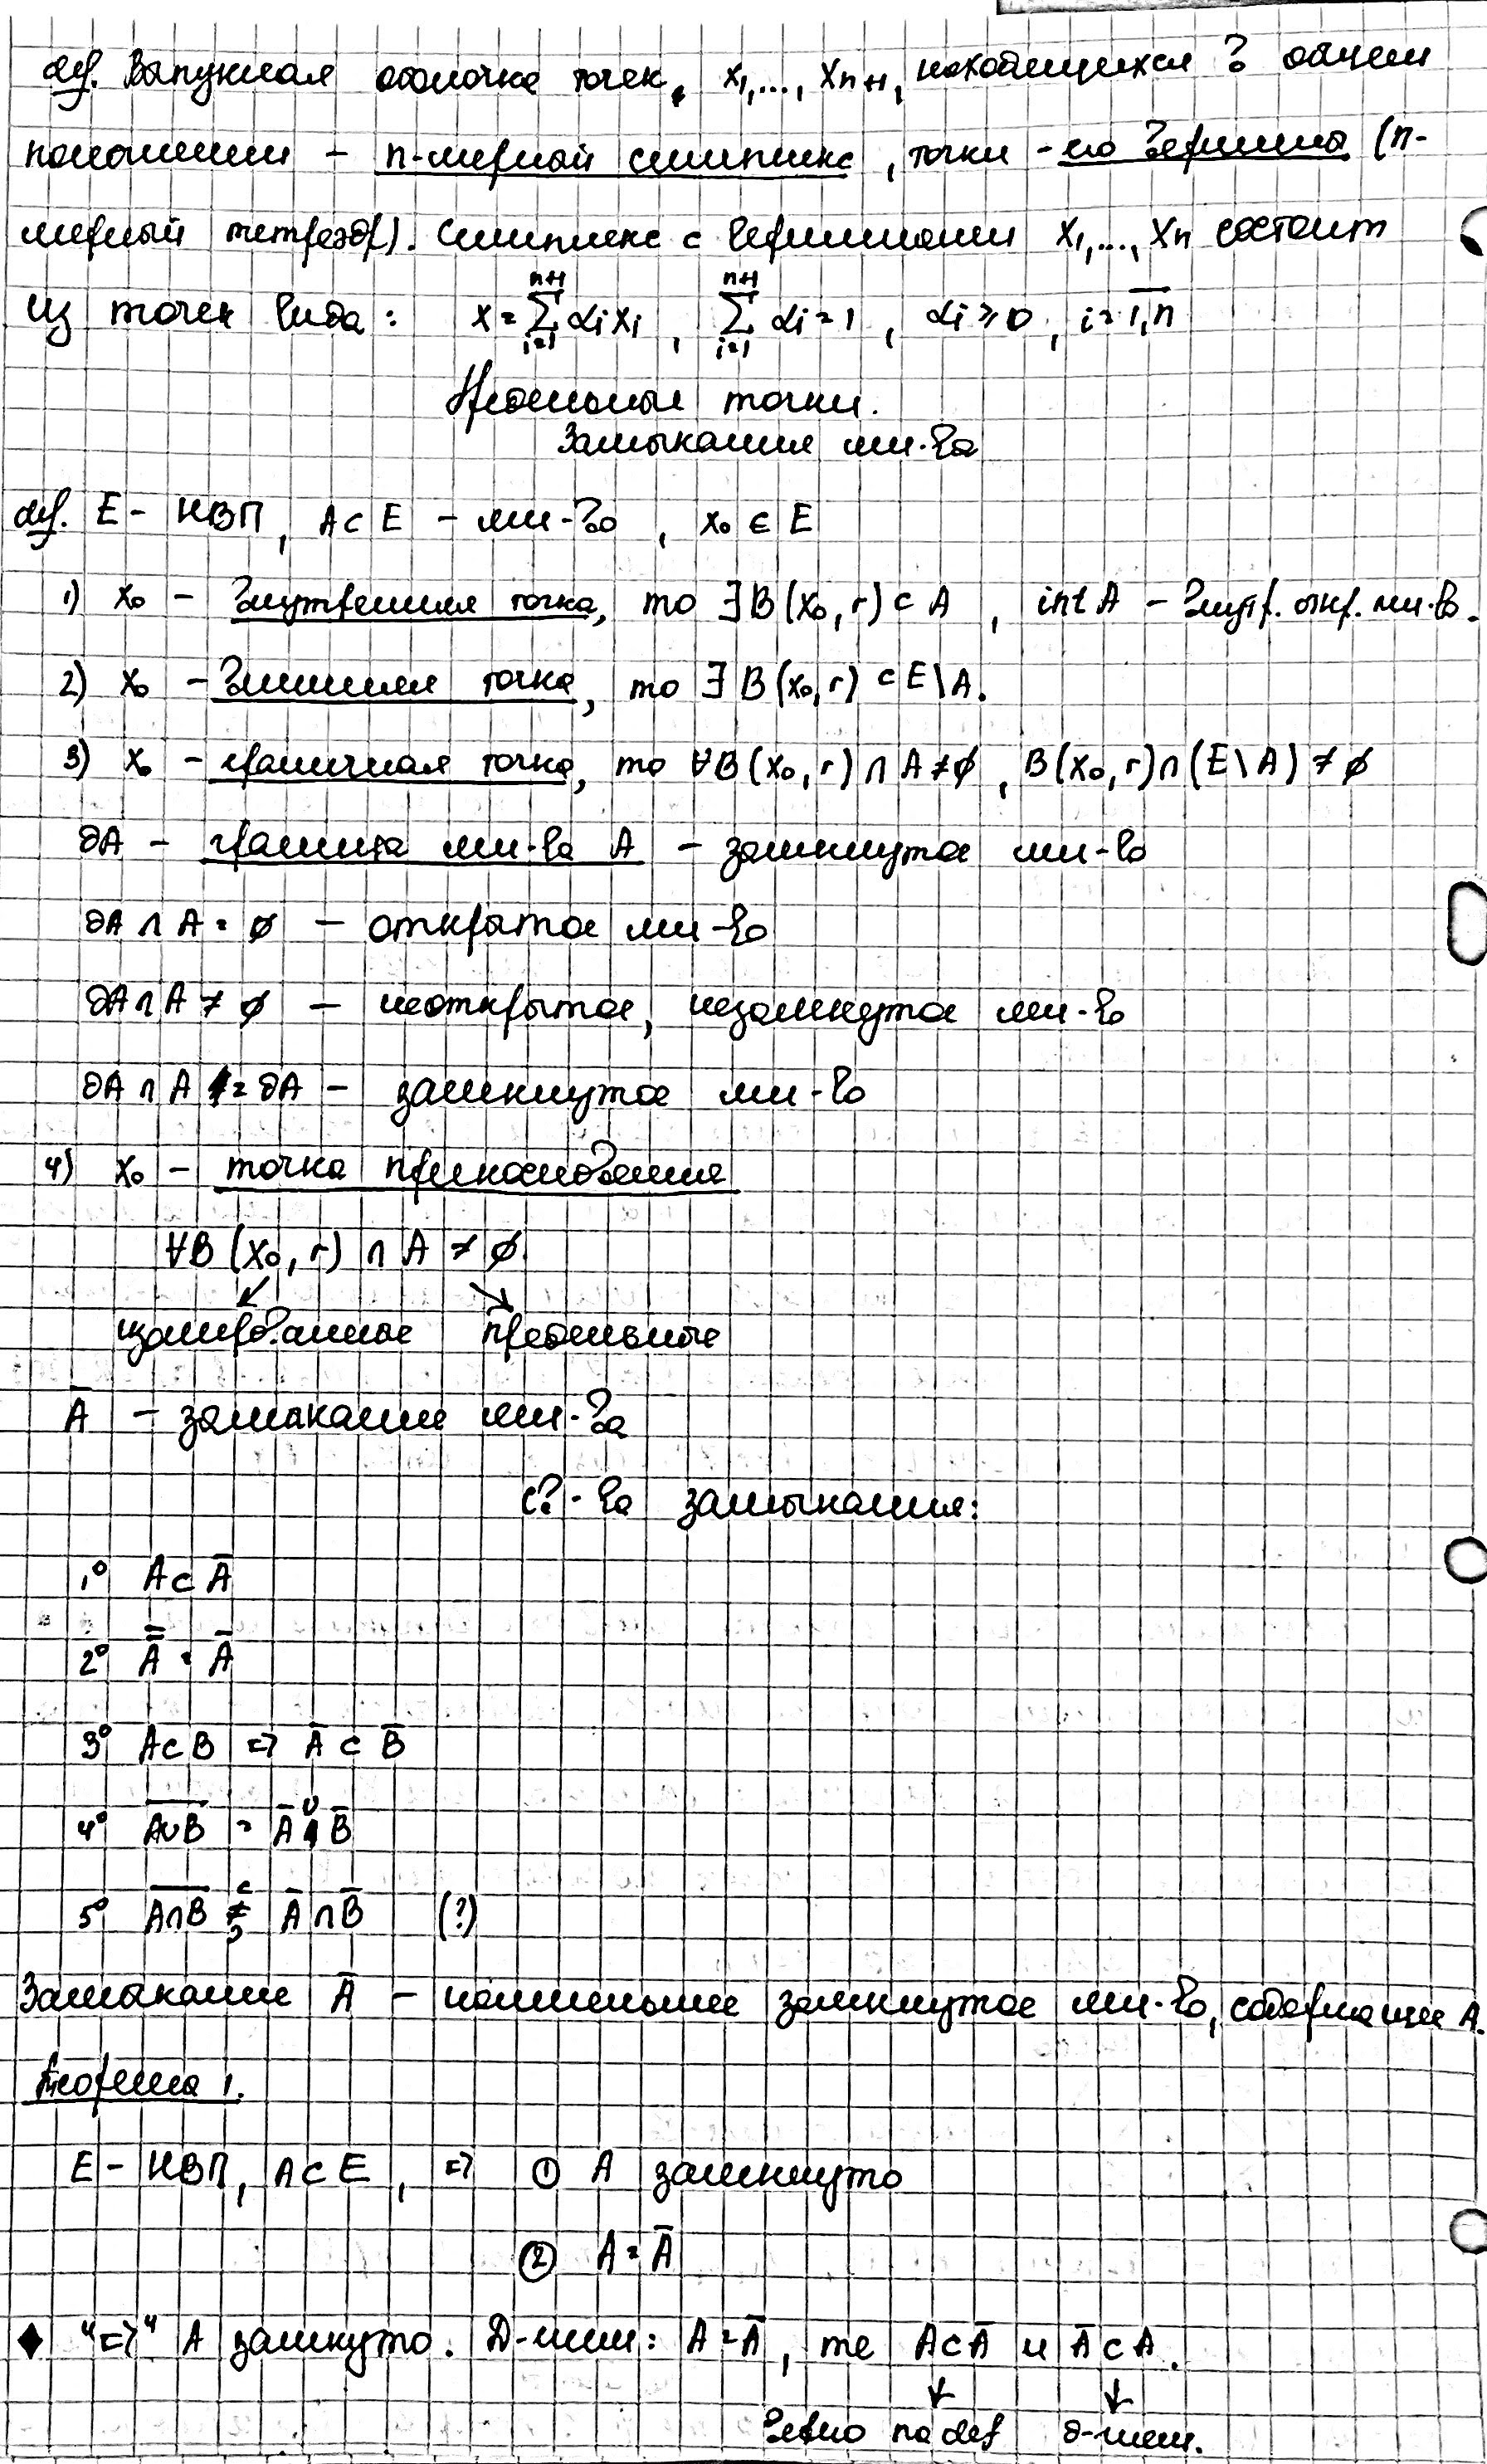 def. Выпуклая оболочка точек, x₁,..., xₙ₊₁, находящихся в общем
положении – n-мерный симплекс, точки – его вершины (n-
мерный тетраэдр). Симплекс с вершинами x₁,..., xₙ состоит
из точек вида: x = ∑ᵢ₌₁ⁿ⁺¹ αᵢxᵢ, ∑ᵢ₌₁ⁿ⁺¹ αᵢ = 1, αᵢ ≥ 0, i = 1,n̅
Предельные точки.
Замыкания мн-ва
def. E – НВП, A ⊂ E – мн-во, x₀ ∈ E
1) x₀ – внутренняя точка, то ∃ B(x₀, r) ⊂ A, int A – внутр. откр. мн-во.
2) x₀ – внешняя точка, то ∃ B(x₀, r) ⊂ E\A.
3) x₀ – граничная точка, то ∀B(x₀, r) ∩ A ≠ ∅, B(x₀, r) ∩ (E\A) ≠ ∅
∂A – граница мн-ва A – замкнутое мн-во
∂A ∩ A = ∅ – открытое мн-во
∂A ∩ A ≠ ∅ – неоткрытое, незамкнутое мн-во
∂A ∩ A = ∂A – замкнутое мн-во
4) x₀ – точка прикосновения
∀B(x₀, r) ∩ A ≠ ∅
↙ ↘
изолированные предельные
A̅ – замыкание мн-ва
св-ва замыкания:
1° A ⊂ A̅
2° A̿ = A̅
3° A ⊂ B => A̅ ⊂ B̅
4° A̅∪̅B̅ = A̅ ∪ B̅
5° A̅∩̅B̅ ≠ A̅ ∩ B̅ (?)
Замыкание A̅ – наименьшее замкнутое мн-во, содержащее A.
Теорема 1.
E – НВП, A ⊂ E, => ① A замкнуто
② A = A̅
♦ "=>" A замкнуто. Д-жем: A = A̅, те A ⊂ A̅ и A̅ ⊂ A.
↓ ↓
верно по def д-жем.